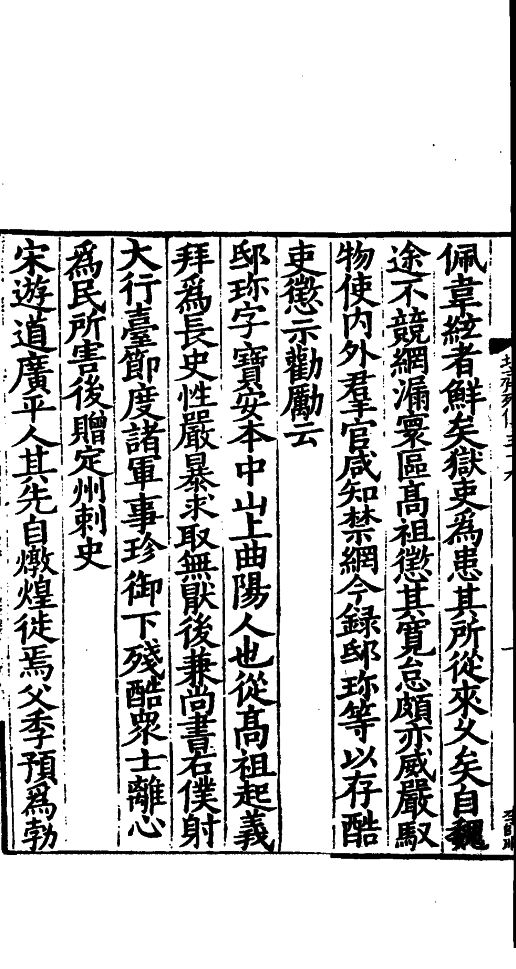 佩韋絃者鮮矣獄吏爲患其所從來久矣自魏
途不競網漏寰區高祖懲其寬怠頗亦威嚴馭
物使内外羣官咸知禁網今録邸珎等以存酷
吏懲示勸勵云
邸珎字寶安本中山上曲陽人也從高祖起義
拜爲長史性嚴暴求取無猒後兼尚書右僕射
大行臺節度諸軍事珍御下殘酷衆士離心
爲民所害後贈定州刺史
宋遊道廣平人其先自燉煌徙焉父季預爲勃